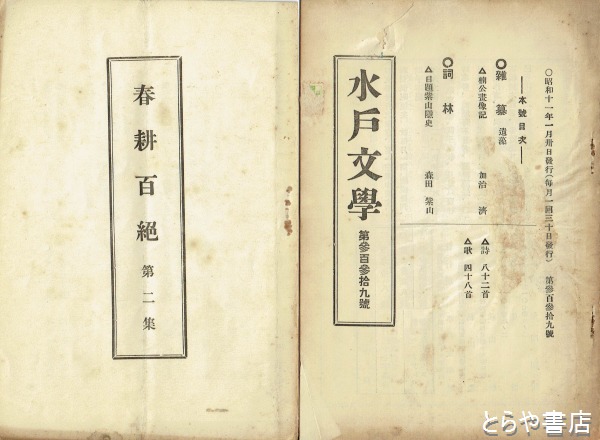 〇昭和十一年一月卅日發行(每月一回三十日發行) 第參百參拾九號
―本號目次―
〇雜纂 遺藻
△楠公畫像記 加治 濟
〇詞林
△自題紫山隱史 森田 紫山
△詩 八十二首
△歌 四十八首
水戶文學 第參百參拾九號
春耕百絕 第二集
とらや書店